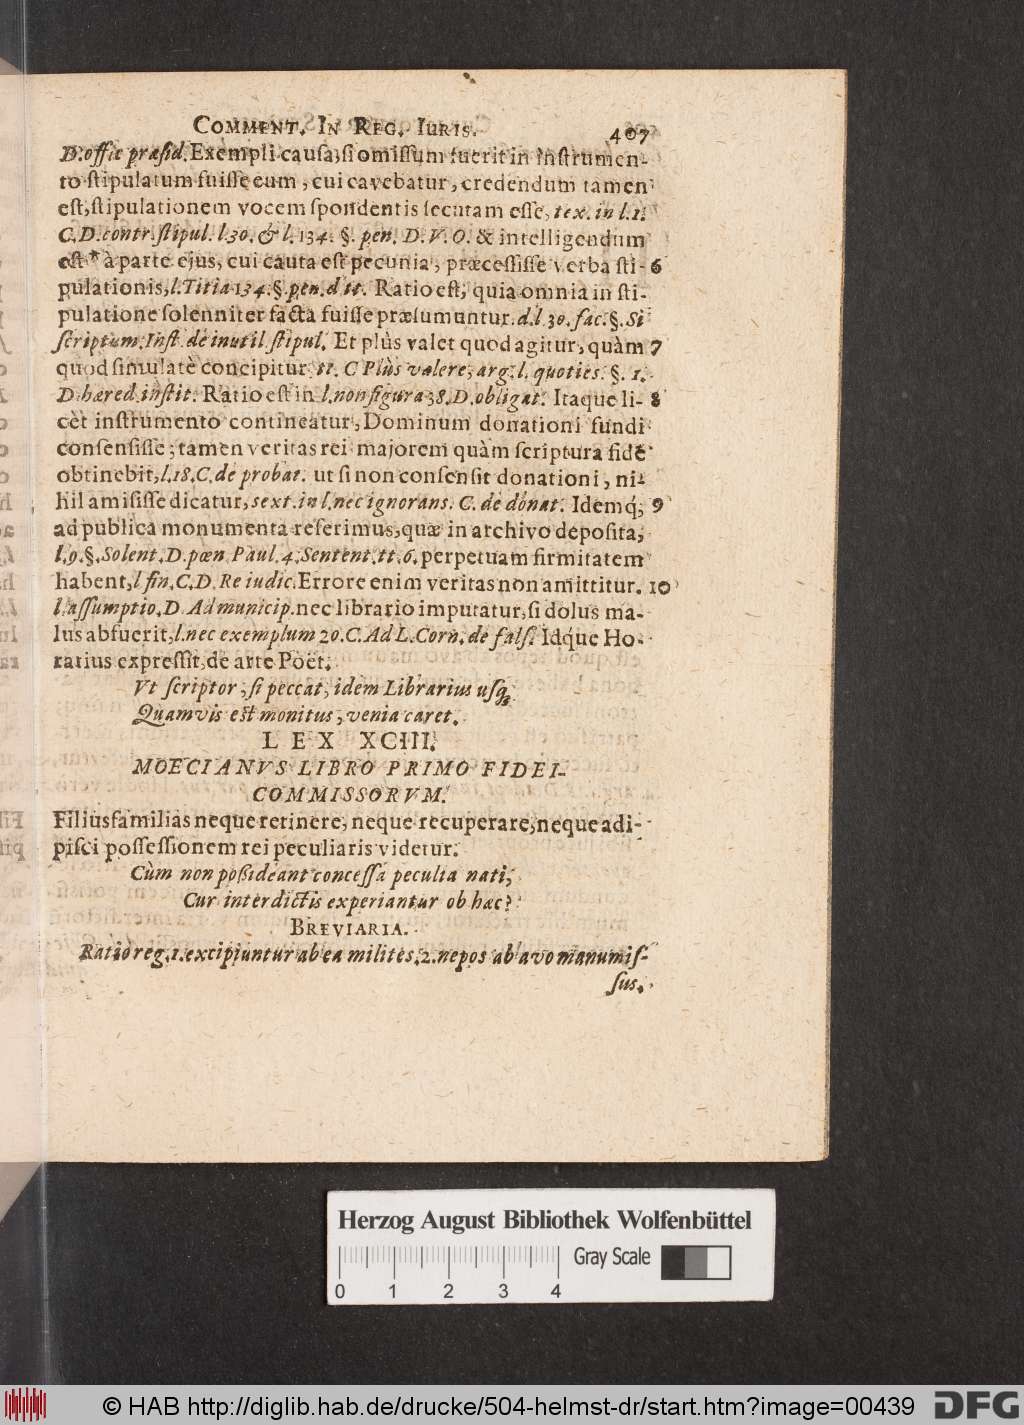 COMMENT. IN REG. IURIS. 407
D. offic præsid. Exempli causa, si omissum fuerit in instrumen-
to stipulatum fuisse eum, cui cavebatur, credendum tamen
est, stipulationem vocem spondentis secutam esse, tex. in l. 1.
C. D. contr. stipul. l. 30. & l. 134. §. pen. D. V. O. & intelligendum
est à parte ejus, cui cauta est pecunia, præcessisse verba sti- 6
pulationis, l. Titia 134. §. pen. d tt. Ratio est, quia omnia in sti-
pulatione solenniter facta fuisse præsumuntur. d. l 30. fac. §. Si
scriptum. Inst. de inutil stipul. Et plùs valet quod agitur, quàm 7
quod simulatè concipitur. tt. C Plùs valere, arg. l. quoties. §. 1.
D. hæred. instit. Ratio est in l. non figura 38. D. obligat. Itaque li- 8
cèt instrumento contineatur, Dominum donationi fundi
consensisse; tamen veritas rei majorem quàm scriptura fidẽ
obtinebit, l. 18. C. de probat. ut si non consensit donationi, ni-
hil amisisse dicatur, sext. in l. nec ignorans. C. de donat. Idemq́; 9
ad publica monumenta referimus, quæ in archivo deposita,
l. 9. §. Solent. D. pœn Paul. 4. Sentent. tt. 6. perpetuam firmitatem
habent, l fin. C. D. Re iudic. Errore enim veritas non amittitur. 10
l. assumptio. D. Ad municip. nec librario imputatur, si dolus ma-
lus abfuerit, l. nec exemplum 20. C. Ad L. Corn. de fals. Idq́ue Ho-
ratius expressit, de arte Poët.
Vt scriptor, si peccat, idem Librarius usq;
Quamvis est monitus, venia caret.
LEX XCIII.
MOECIANVS LIBRO PRIMO FIDEI-
COMMISSORVM.
Filiusfamilias neque retinere, neque recuperare, neque adi-
pisci possessionem rei peculiaris videtur.
Cùm non poßideant concessa peculia nati,
Cur interdictis experiantur ob hæc?
BREVIARIA.
Ratio reg. 1. excipiuntur ab ea milites. 2. nepos ab avo manumis-
sus.
Herzog August Bibliothek Wolfenbüttel
Gray Scale
0 1 2 3 4
© HAB http://diglib.hab.de/drucke/504-helmst-dr/start.htm?image=00439 DFG